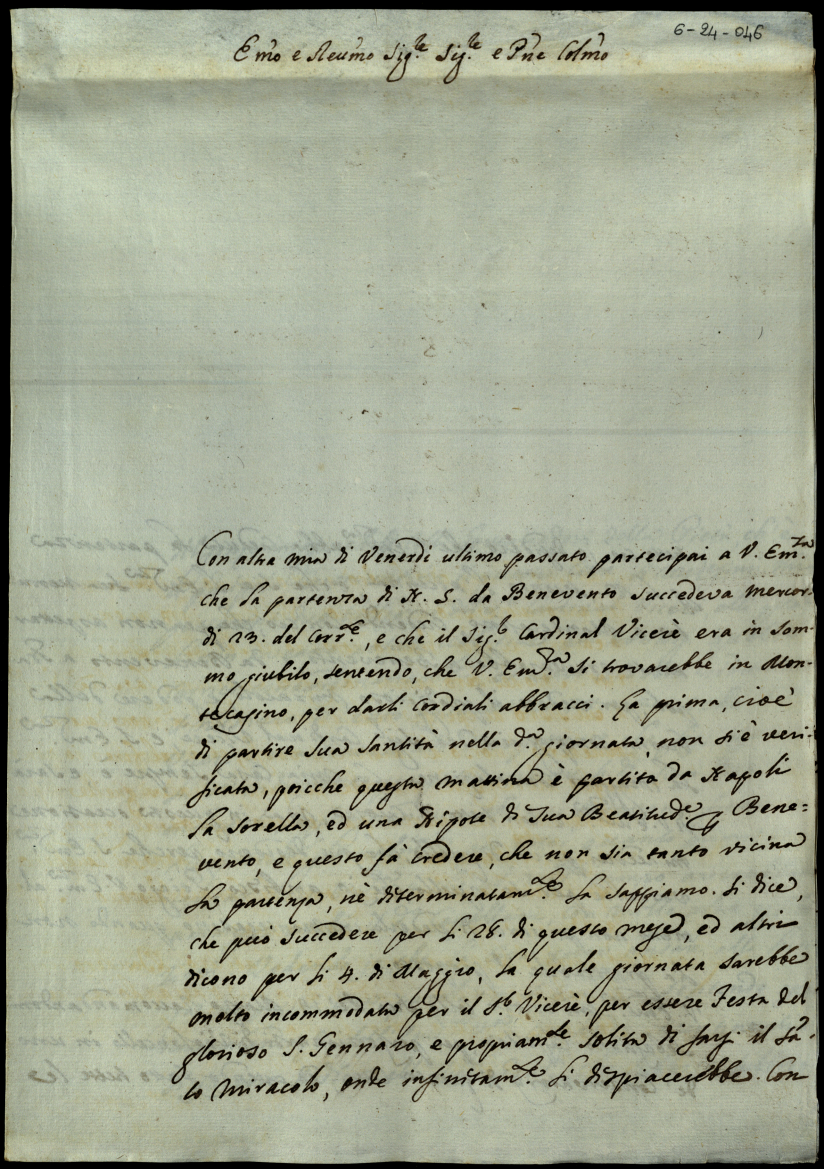 6-24-046
Emo e Revmo Sig.re Sig.re e Pne Colmo
Con altra mia di Venerdì ultimo passato partecipai a V. Em.za
che la partenza di N. S. da Benevento succedeva mercor-
di 23. del corr.te, e che il Sig.r Cardinal Vicerè era in som-
mo giubilo, sentendo, che V. Em.za si trovarebbe in Mon-
tecasino, per darli cordiali abbracci. La prima, cioè
di partire Sua Santità nella d.a giornata non si è veri-
ficata, poicche questa mattina è partita da Napoli
la sorella, ed una Nipote di Sua Beatitud.e p Bene=
vento, e questo fà credere, che non sia tanto vicina
la partenza, nè determinatam.te la sappiamo. Si dice,
che può succedere per li 28. di questo mese, ed altri
dicono per li 4. di Maggio, la quale giornata sarebbe
molto incommodata per il S.r Vicerè, per essere Festa del
glorioso S. Gennaro, e propriam.te solita di farsi il Sa-
to Miracolo, onde infinitam.te li dispiacerebbe. Con